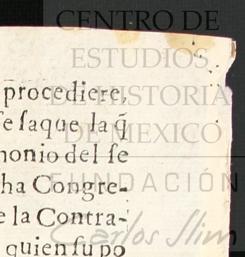 CENTRO DE
ESTUDIOS
DE HISTORIA
DE MEXICO
FUNDACIÓN
Carlos Slim
procediere,
se saque la q̃
monio del se
ha Congre-
e la Contra-
quien su po